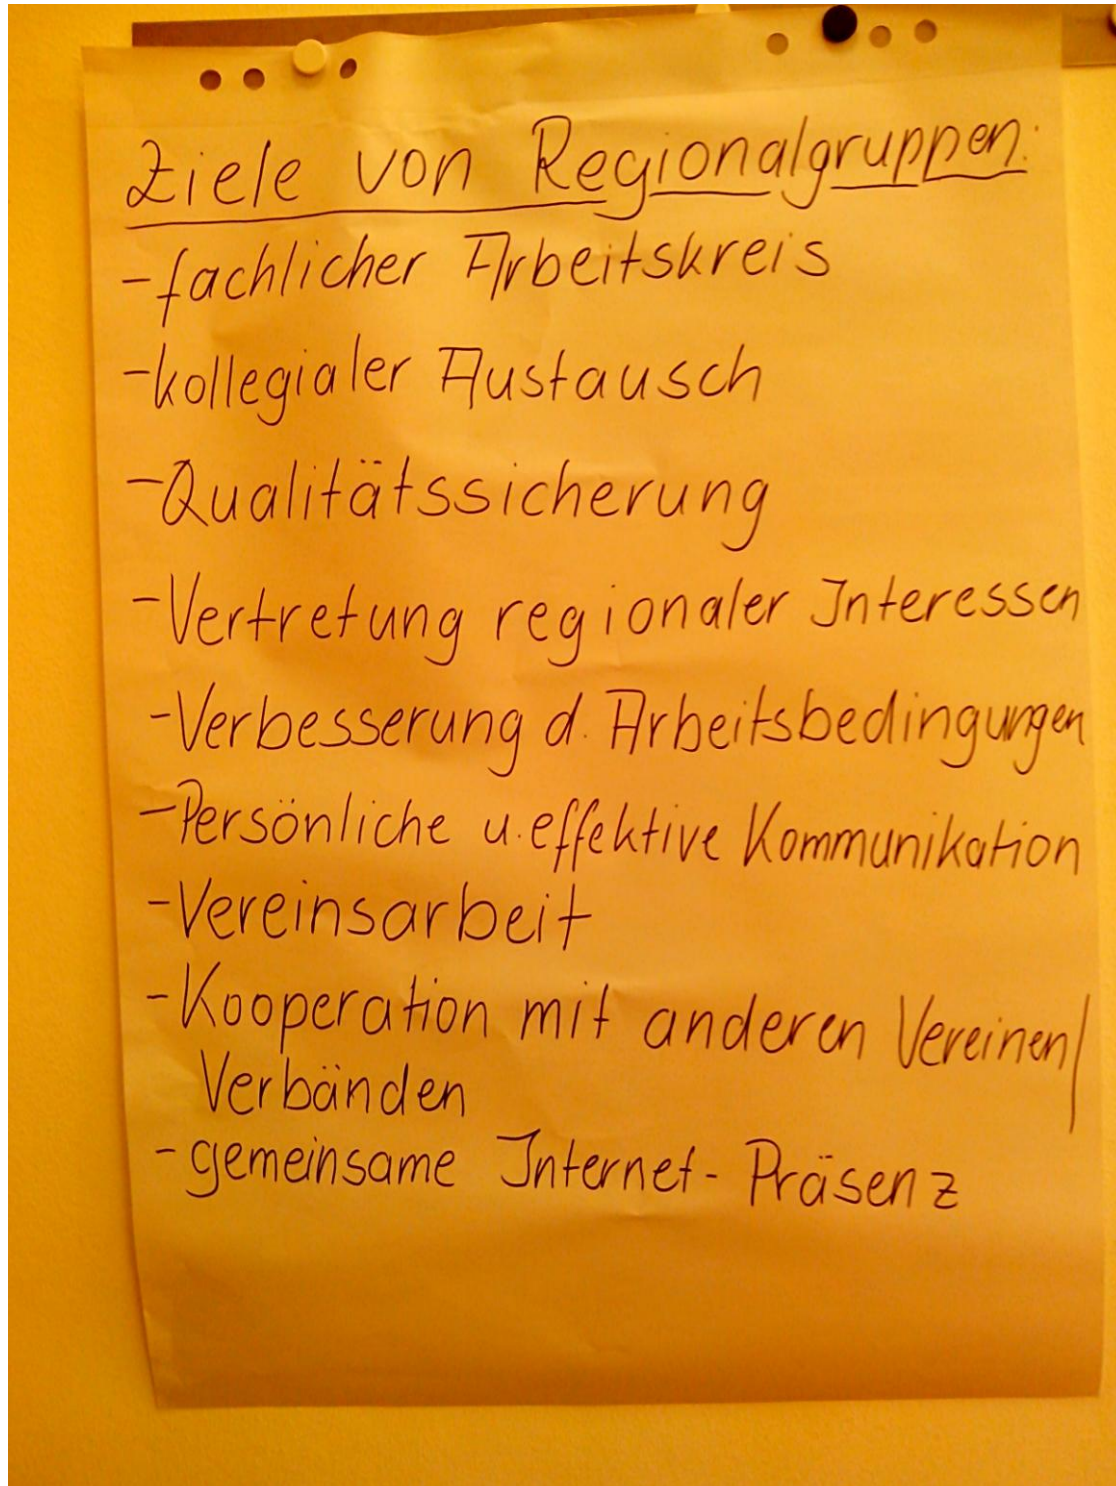 Ziele von Regionalgruppen:
- fachlicher Arbeitskreis
- kollegialer Austausch
- Qualitätssicherung
- Vertretung regionaler Interessen
- Verbesserung d. Arbeitsbedingungen
- Persönliche u. effektive Kommunikation
- Vereinsarbeit
- Kooperation mit anderen Vereinen/
Verbänden
- gemeinsame Internet-Präsenz